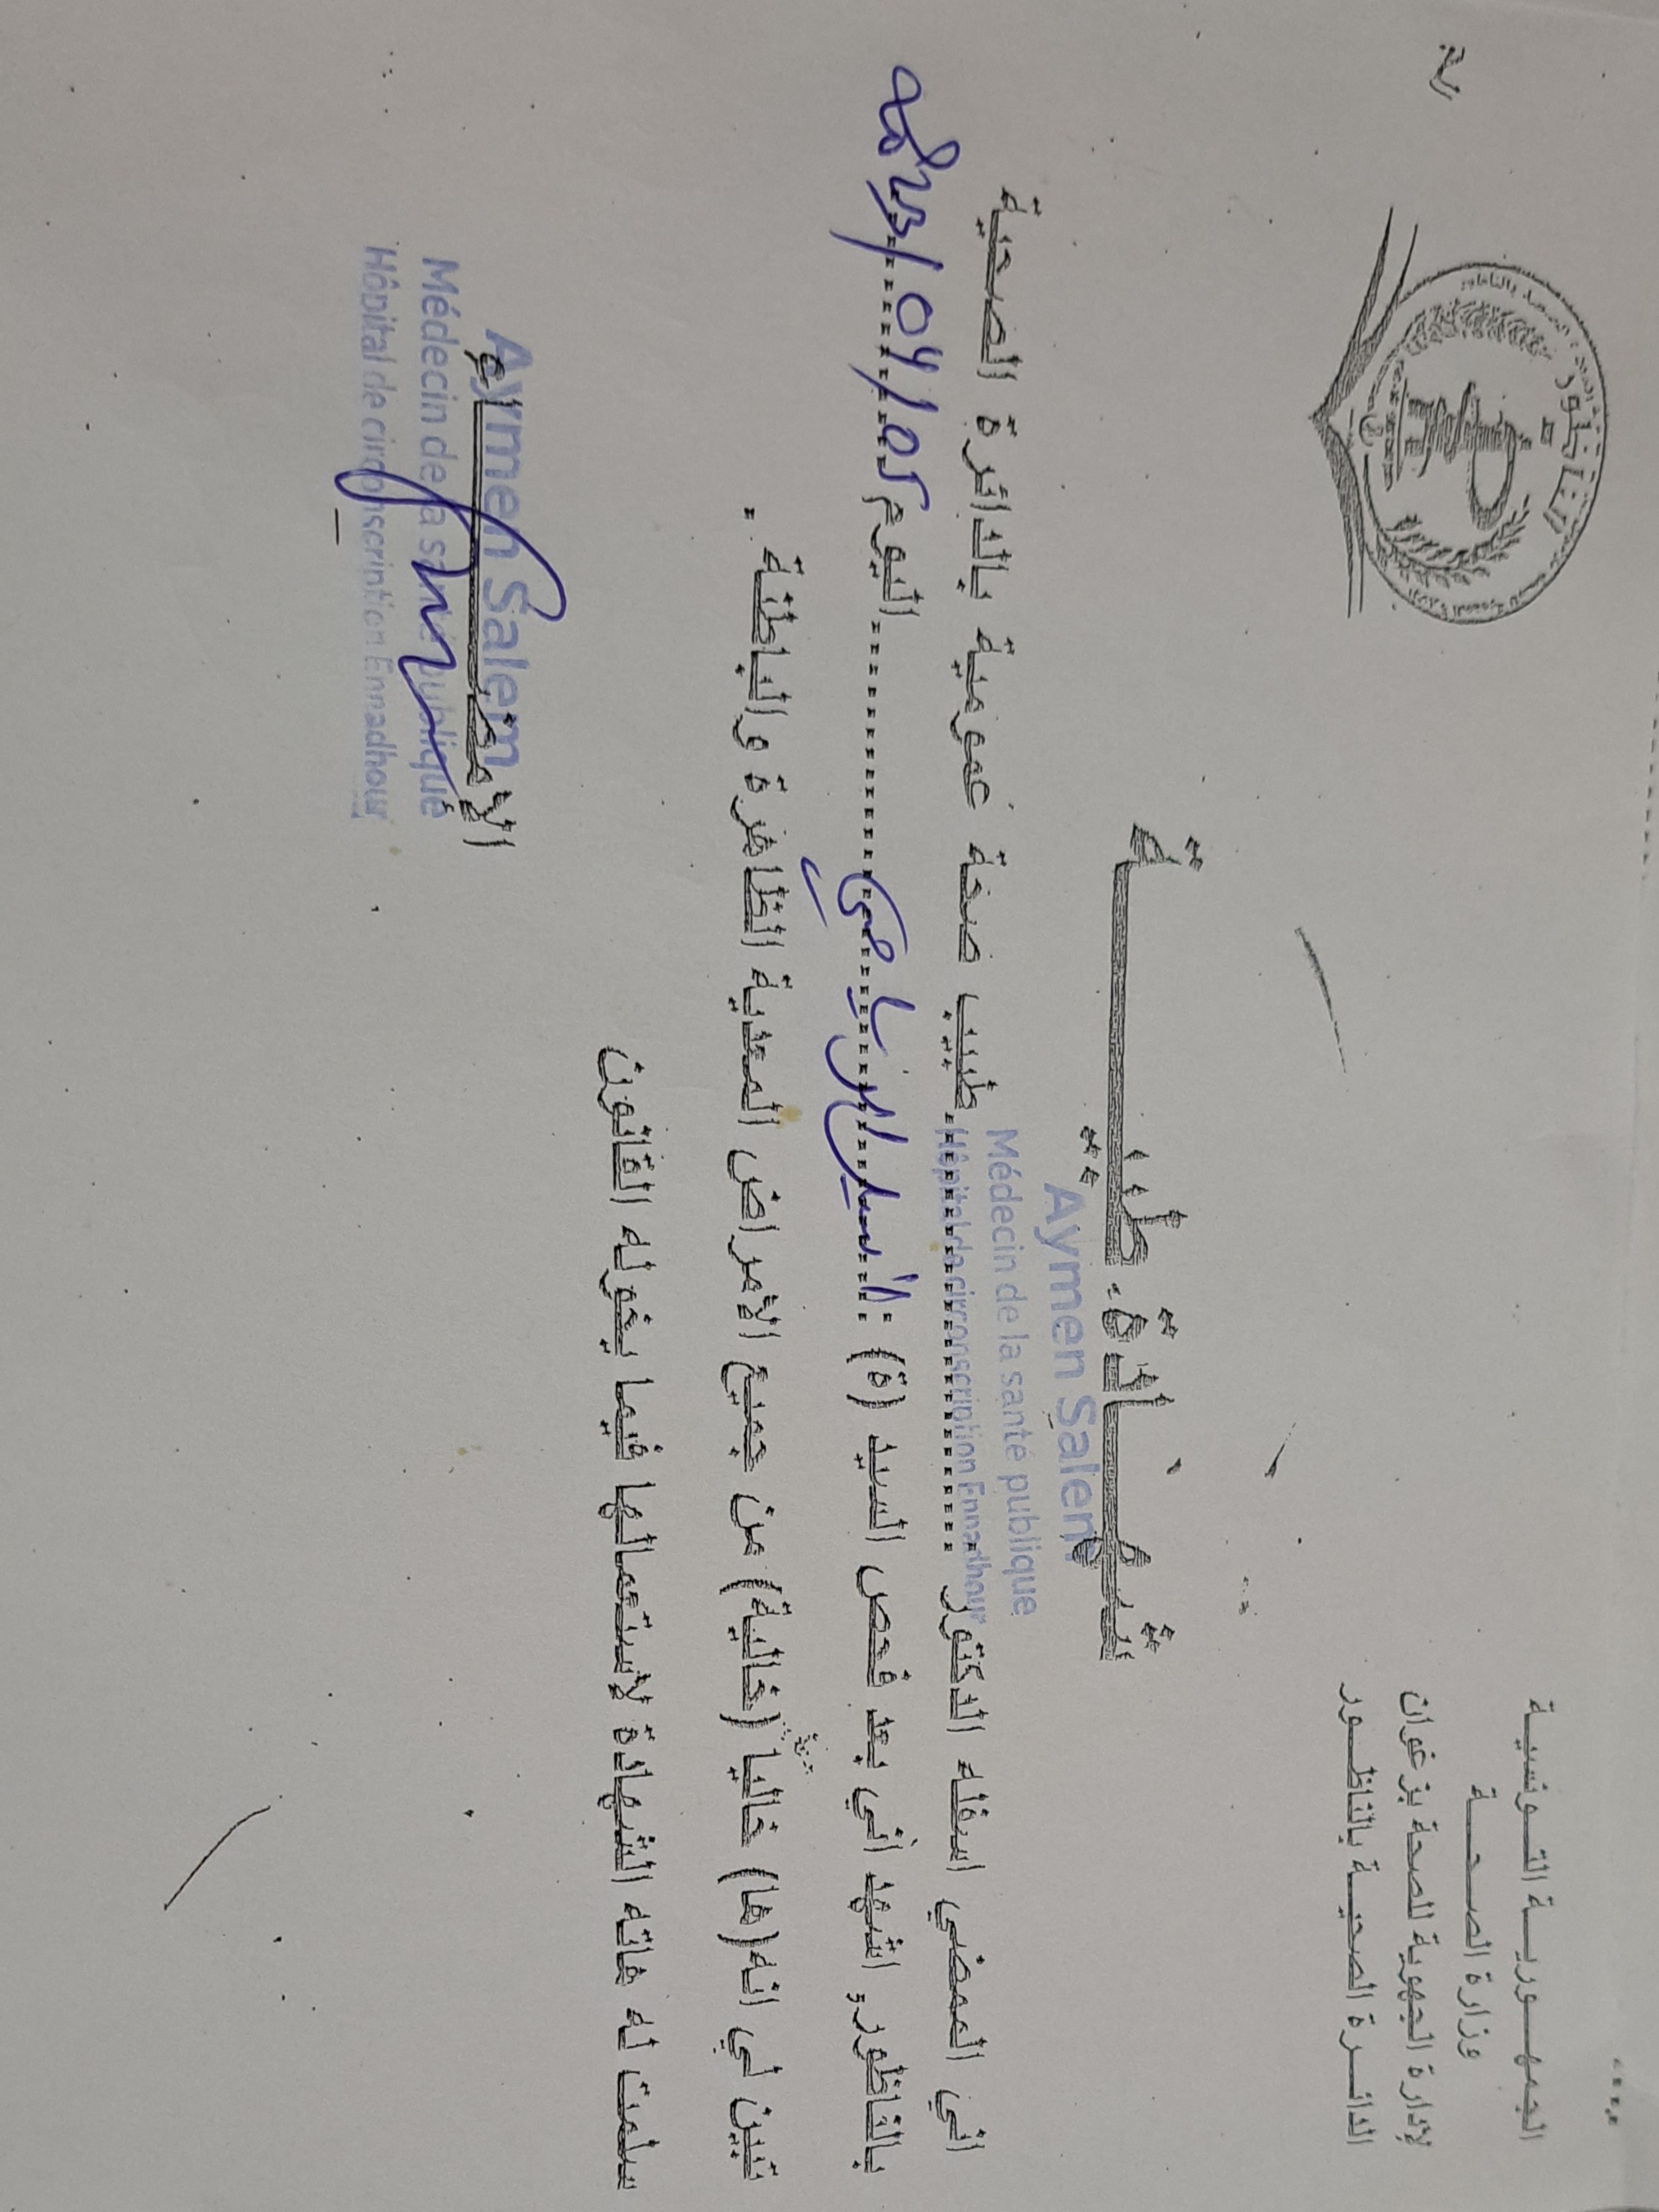 الجمهورية التونسية
وزارة الصحة
لإدارة الجهوية للصحة بزغوان
الدائرة الصحية بالناظور
شهادة طبية
Aymen Salem
Médecin de la santé publique
Hôpital de circonscription Ennadhour
اني الممضي اسفله الدكتور طبيب صحة عمومية بالدائرة الصحية
بالناظور, اشهد أني بعد فحص السيد (ة) : اليوم
تبين لي انه(ها) خاليا (خالية) من جميع الأمراض المعدية الظاهرة والباطنة .
سلمت له هاته الشهادة لاستعمالها فيما يخوله القانون
الإمضاء
Aymen Salem
Médecin de la santé publique
Hôpital de circonscription Ennadhour